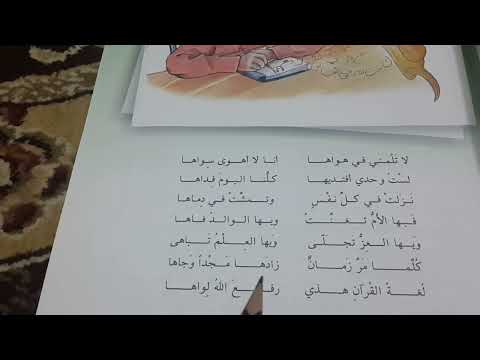 لا تَلُمني في هواها أنا لا أهوى سِواها
لستُ وحدي أفتديها كلُّنا اليومَ فِداها
نَزلتْ في كلِّ نفسٍ وتمشَّتْ في دماها
فَبِها الأمُّ تغنَّتْ وبِها الوالدُ فاها
وَبِها العِزُّ تجلّى وَبِها العِلْمُ تَباهى
كُلَّما مَرَّ زَمانٌ زادَها مَجْداً وَجاها
لُغةُ القُرآنِ هذي رفعَ اللهُ لِواها